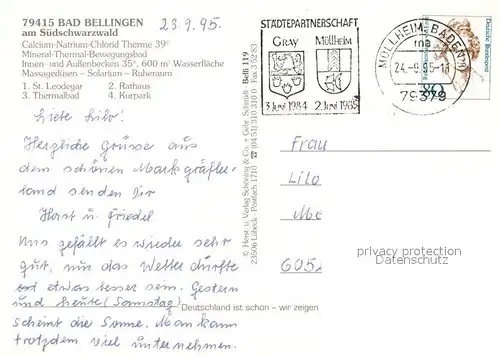 79415 BAD BELLINGEN
am Südschwarzwald
23.9.95.
Calcium-Natrium-Chlorid Therme 39°
Mineral-Thermal-Bewegungsbad
Innen- und Außenbecken 35°, 600 m² Wasserfläche
Massagedüsen – Solarium – Ruheraum
1. St. Leodegar 2. Rathaus
3. Thermalbad 4. Kurpark
Liebe Lilo!
Herzliche Grüsse aus
dem schönen Markgräfler-
land senden Dir
Horst u. Friedel
Uns gefällt es wieder sehr
gut, nur das Wetter dürfte
etwas besser sein. Gestern
und heute (Samstag)
scheint die Sonne. Man kann
trotzdem viel unternehmen.
Deutschland ist schön – wir zeigen
© Herst. u. Verlag Schöning & Co. + Gebr. Schmidt
23506 Lübeck - Postfach 1710 ☎ (04 51) 310 310 0
Belli 119
Fax 3 52 83
STÄDTEPARTNERSCHAFT
GRAY MÜLLHEIM
3. Juni 1984 2. Juni 1985
MÜLLHEIM, BADEN
ma
24.-9.95-18
79379
Deutsche Bundespost
80
Frau
Lilo
Me
6052
privacy protection
Datenschutz